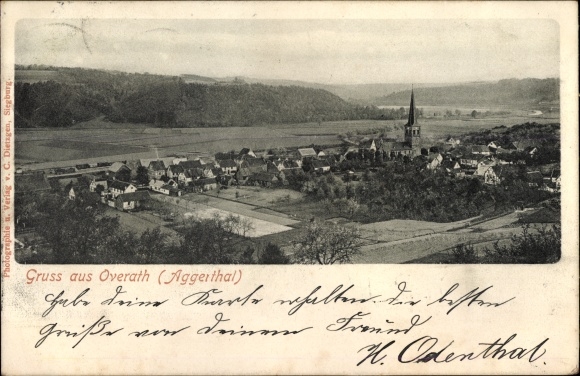 Photographie u. Verlag v. C. Dietzgen, Siegburg.
Gruss aus Overath (Aggerthal)
habe deine Karte erhalten, die besten
Grüße von deinem Freund
H. Odenthal.